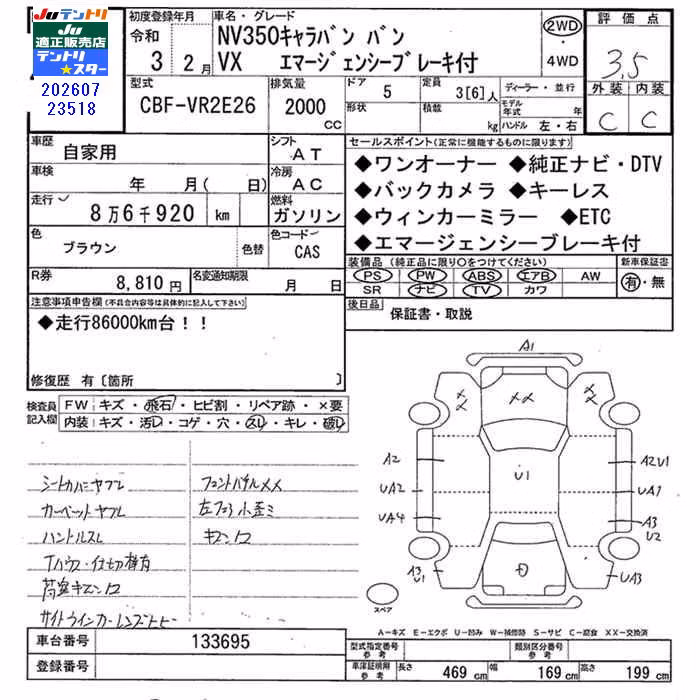 Juテントリ
Ju
適正販売店
テントリ
★スター
202607
23518
初度登録年月
令和
3 2月
車名・グレード
NV350キャラバン バン
VX エマージェンシーブレーキ付
2WD
・
4WD
評価点
3.5
外装 内装
C C
型式
CBF-VR2E26
排気量
2000
cc
ドア
5
形状
定員
3[6]人
積載
kg
ディーラー・並行
モデル年 年
ハンドル 左・右
車歴
自家用
シフト
AT
車検
年 月( 日)
冷房
AC
走行
8万6千920 km
燃料
ガソリン
色
ブラウン
色替
色コード
CAS
R券
8,810円
名変通知期限
月 日
セールスポイント(正常に機能するものに限ります)
◆ワンオーナー ◆純正ナビ・DTV
◆バックカメラ ◆キーレス
◆ウィンカーミラー ◆ETC
◆エマージェンシーブレーキ付
装備品(純正品に限り〇をつけてください)
PS PW ABS エアB AW
SR ナビ TV カワ
新車保証書
有・無
後日品
保証書・取説
注意事項申告欄(不具合内容等は具体的に記入して下さい)
◆走行86000km台！！
修復歴 有〔箇所 〕
検査員
記入欄
FW キズ・飛石・ヒビ割・リペア跡・×要
内装 キズ・汚レ・コゲ・穴・スレ・キレ・破レ
シートカバーヤブレ
カーペットヤブレ
ハンドルスレ
フロントパネルXX
左フロア小歪ミ
A1
XX
XX
XX
A2
UA2
UA4
A3
U1
U1
A2U1
UA1
A3
U2
UA3
スペア
A-キズ E-エクボ U-凹み W-補修跡 S-サビ C-腐食 XX-交換済
車台番号
133695
登録番号
型式指定番号
参考
類別区分番号
参考
車庫証明用
参考
長さ 469 cm 幅 169 cm 高さ 199 cm